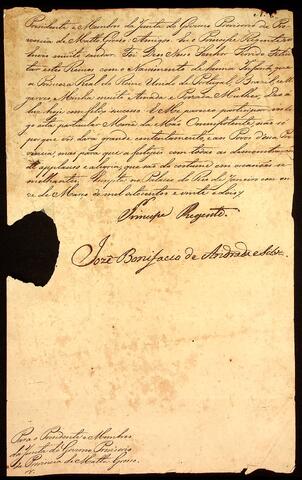 Presidente e Membros da Junta do Governo Provisorio da Pro-
vincia de Matto Grosso. Amigo. Eu o Principe Regente
envio muito saudar. Tendo
tar a este Reino com o Nascimento de huma Infanta que
a Princeza Real do Reino Unido de Portugal Brazil e Al-
garves Minha muito Amada e Prezada Mulher, deo a
luz com feliz successo: E Me pareceo participar-vos
esta particular Mercê da Mão Omnipotente não só
porque vos dara grande contentamento, e aos Povos dessa Pro-
vincia, mas para que a festejeis com todas as demonstrações
de applauso e alegria, que são de costume em occasiões se-
melhantes. Escripta no Palacio do Rio de Janeiro em on-
ze de Março de mil oitocentos e vinte e dous.
Principe Regente.
José Bonifacio de Andrada e Silva.
Para o Presidente e Membros
da Junta do Governo Provisorio
da Provincia de Matto Grosso.